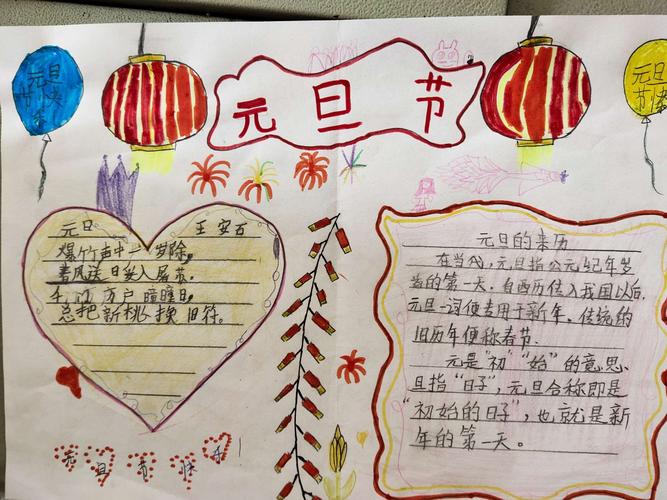 元旦
节快
乐
元旦节
元旦
节快
元日 王安石
爆竹声中一岁除,
春风送日关入屠苏.
千门万户瞳瞳日,
总把新桃换旧符。
元旦节快乐
元旦的来历
在当代,元旦指公元纪年岁
当的第一天,自西历传入我国以后,
元旦一词便专用于新年,传统的
旧历年便称春节.
元是"初""始"的意思、
旦指"日子",元旦合称即是
"初始的日子",也就是新
年的第一天。